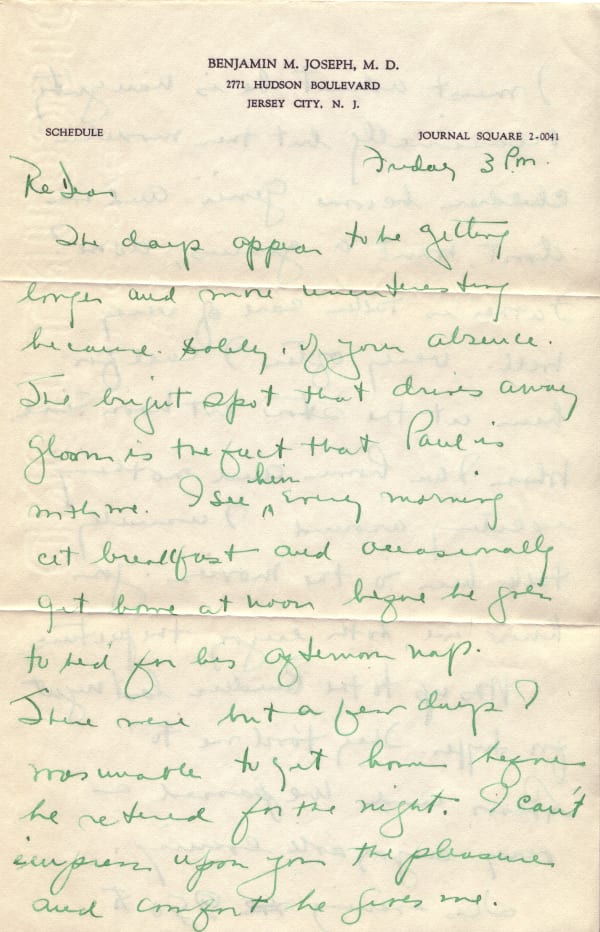 BENJAMIN M. JOSEPH, M. D.
2771 HUDSON BOULEVARD
JERSEY CITY, N. J.
SCHEDULE
JOURNAL SQUARE 2-0041
Friday 3 P.m.
Re Dear
The days appear to be getting
longer and more uninteresting
because. Solely, of your absence.
The bright spot that drives away
gloom is the fact that Paul is
with me. I see him every morning
at breakfast and occasionally
get home at noon before he goes
to bed for his afternoon nap.
There were but a few days I
was unable to get home before
he retired for the night. I can't
impress upon you the pleasure
and comfort he gives me.